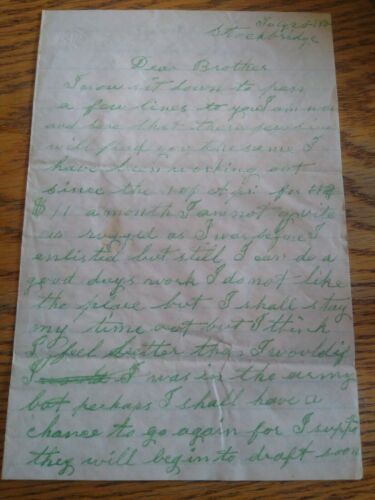 July 20
Stockbridge
Dear Brother
I now sit down to pen
a few lines to you I am well
and hope that these few lines
will find you the same I
have been working out
since the 1 of Apr for
$11 a month I am not quite
as rugged as I was before I
enlisted but still I can do a
good days work I do not like
the place but I shall stay
my time out but I think
I feel better than I would if
I I was in the army
but perhaps I shall have a
chance to go again for I suppo
they will begin to draft soon